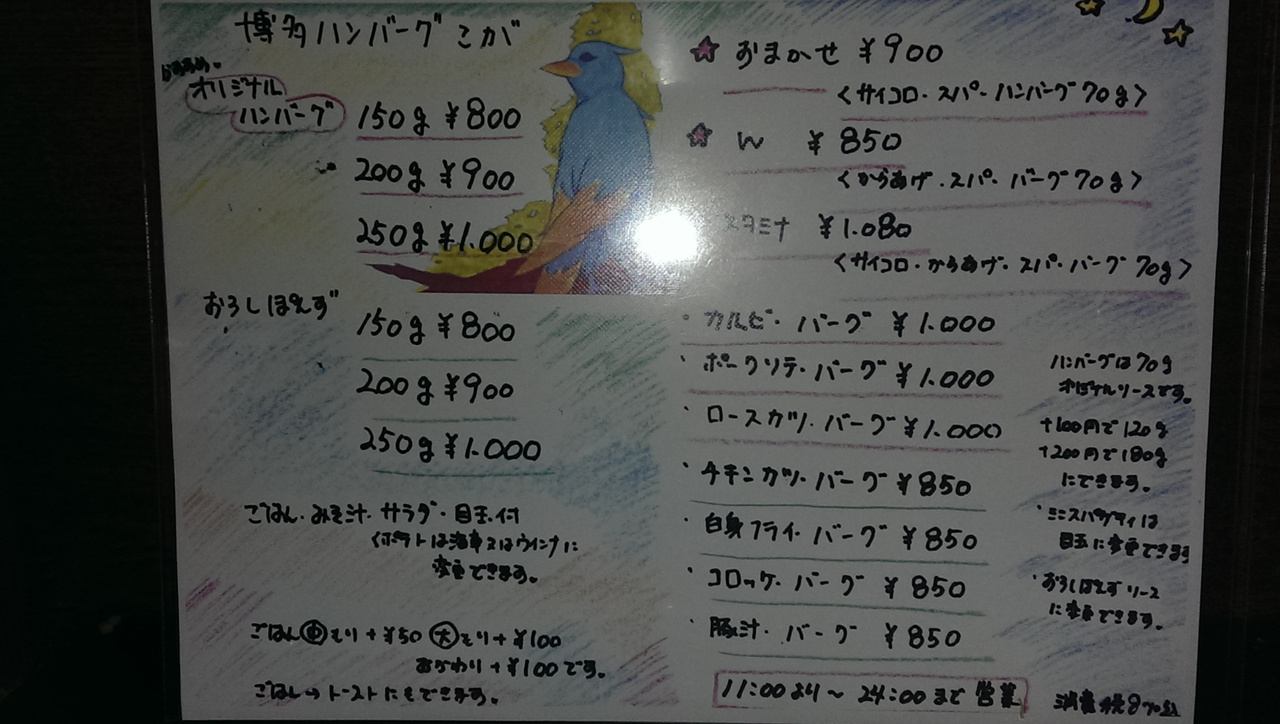 博多ハンバーグこが
おすすめ。
オリジナル
ハンバーグ
150g ¥800
200g ¥900
250g ¥1.000
おろしぽんず
150g ¥800
200g ¥900
250g ¥1.000
ごはん・みそ汁・サラダ・目玉付
くポテトは海草又はウインナに
変更できます。
ごはん中もり+¥50 大もり+¥100
おかわり+¥100です。
ごはん→トーストにもできます。
☆ おまかせ ¥900
<サイコロ・スパ・ハンバーグ70g>
☆ W ¥850
<からあげ・スパ・バーグ70g>
スタミナ ¥1.080
<サイコロ・からあげ・スパ・バーグ70g>
・カルビ・バーグ ¥1.000
・ポークソテ・バーグ ¥1.000
・ロースカツ・バーグ ¥1.000
・チキンカツ・バーグ ¥850
・白身フライ・バーグ ¥850
・コロッケ・バーグ ¥850
・豚汁・バーグ ¥850
ハンバーグは70g
オリジナルソースです。
+100円で120g
+200円で180g
にできます。
・ミニスパゲティは
目玉に変更できます
・おろしぽんずソース
に変更できます。
11:00より~24:00まで営業
消費税8%込